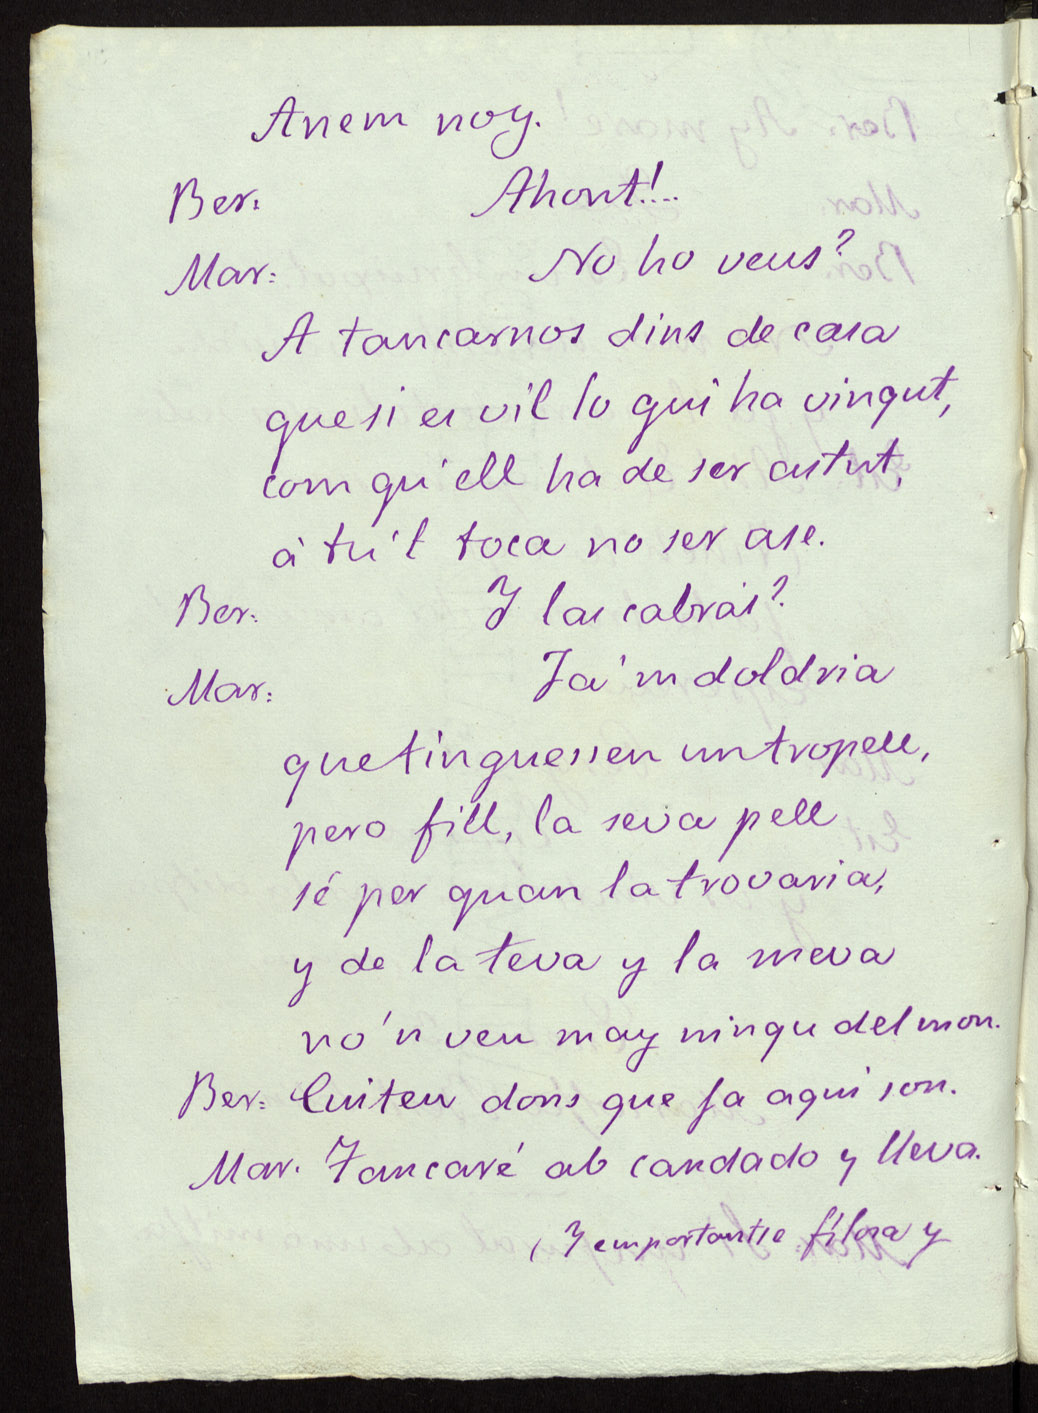 Anem noy.
Ber: Ahont!...
Mar: No ho veus?
A tancarnos dins de casa
que si es vil lo qui ha vingut,
com qu'ell ha de ser astut,
á tú 't toca no ser ase.
Ber: Y las cabras?
Mar: Ja'm doldria
que tinguessen un tropell,
pero fill, la seva pell
sé per quan la trovaria,
y de la teva y la meva
no'n veu may ningu del mon.
Ber: Cuiteu dons que ja aqui son.
Mar. Tancaré ab candado y lleva.
(Y emportantse filosa y